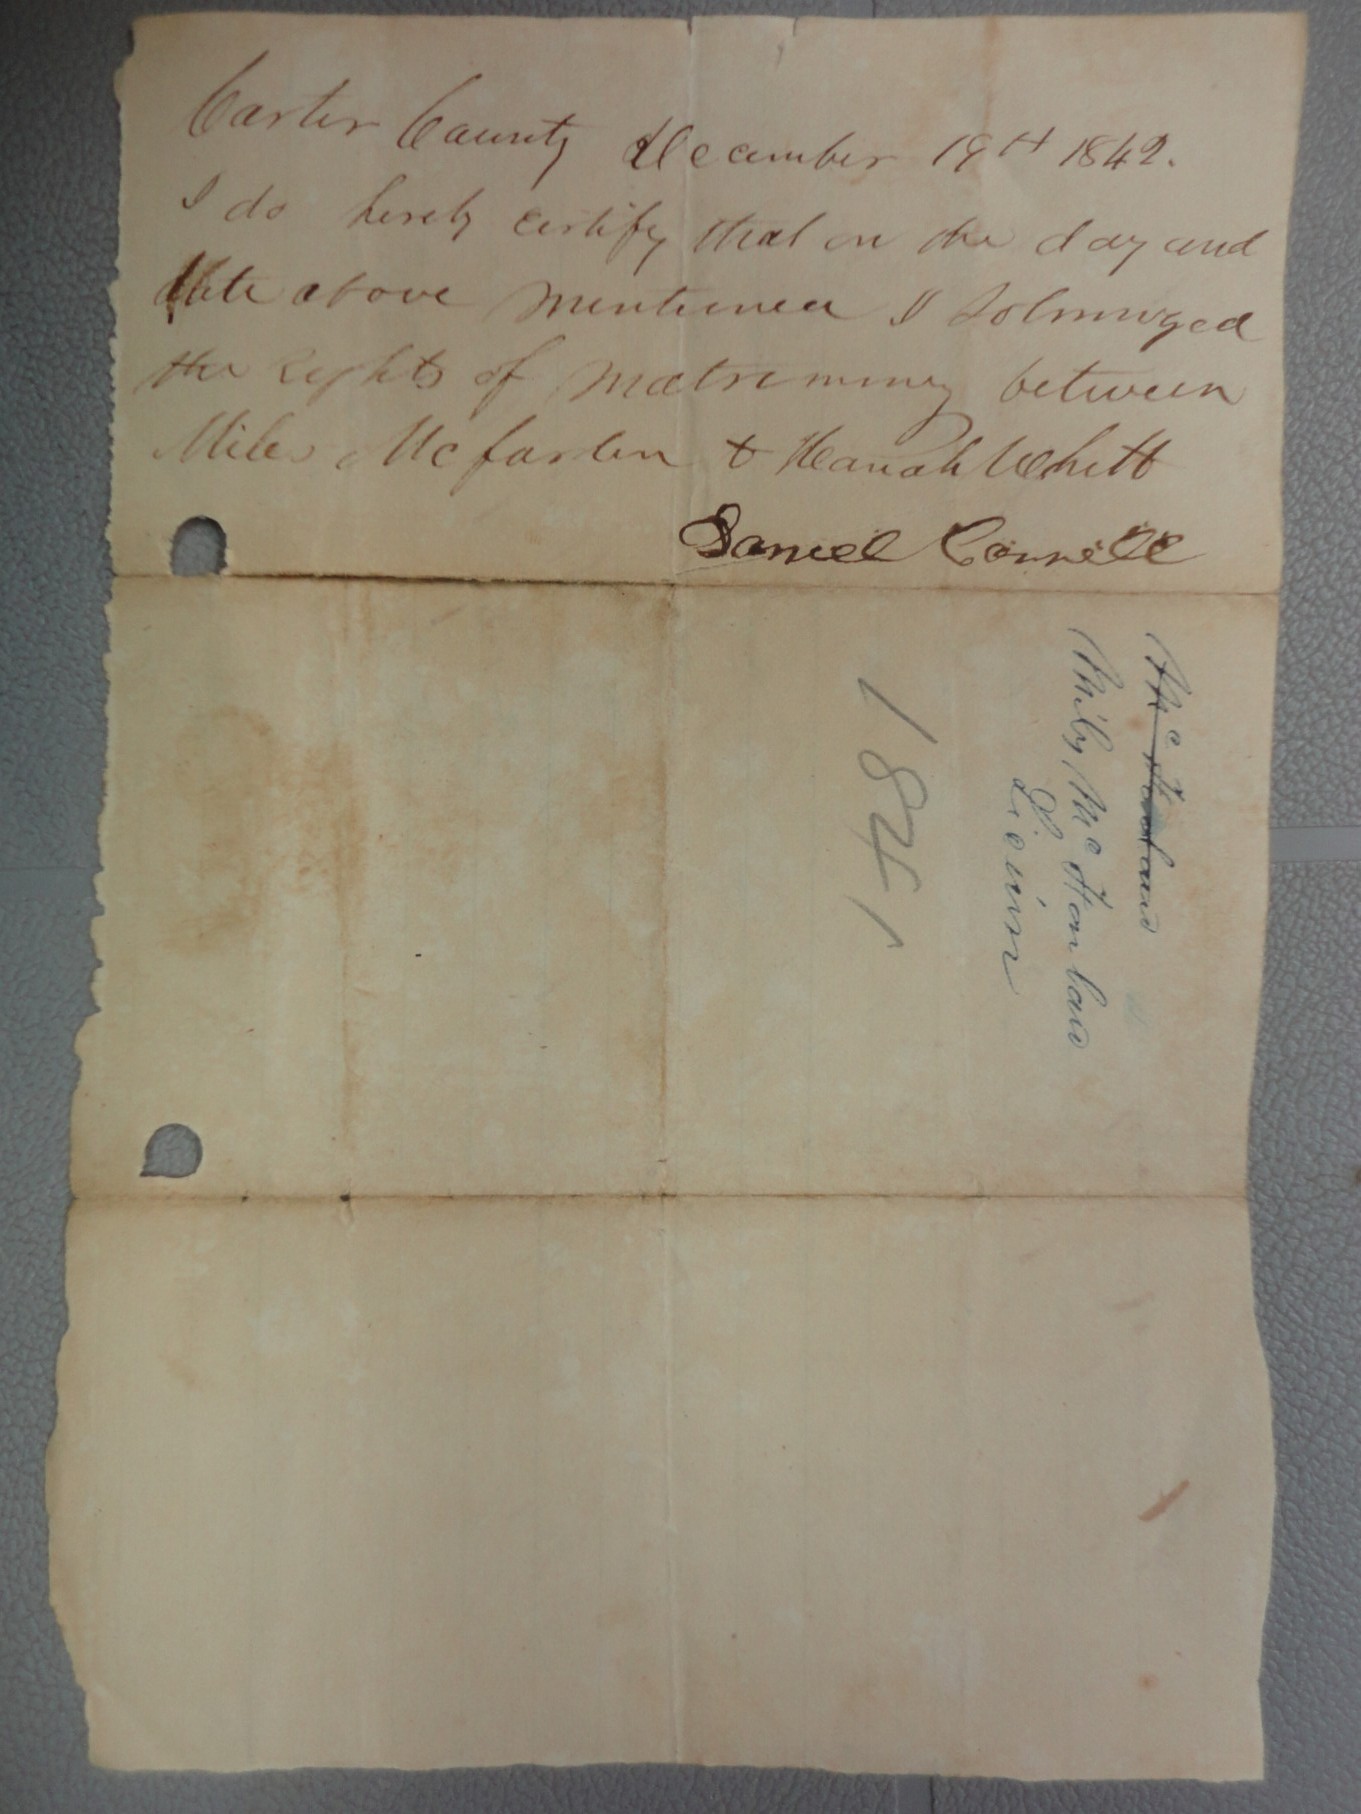 Carter County December 19th 1842.
I do herely certify that on the day and
date above mentioned I Solmnized
the Rights of Matrimony between
Miles Mcfarlin & Hanah Whitt
Daniel Connelle
Mc Farland
Mily McFarland
Licinse
1841